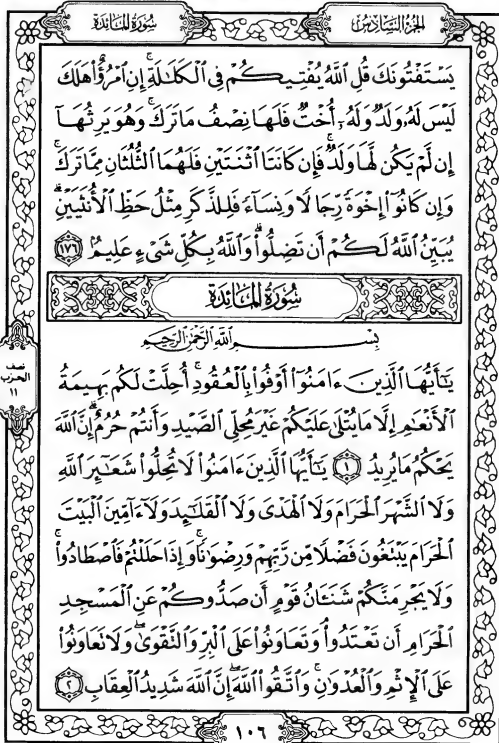 الجزء السادس
سورة المائدة
يَسْتَفْتُونَكَ قُلِ ٱللَّهُ يُفْتِيكُمْ فِي ٱلْكَلَٰلَةِ ۚ إِنِ ٱمْرُؤٌا۟ هَلَكَ
لَيْسَ لَهُۥ وَلَدٌ وَلَهُۥٓ أُخْتٌ فَلَهَا نِصْفُ مَا تَرَكَ ۚ وَهُوَ يَرِثُهَآ
إِن لَّمْ يَكُن لَّهَا وَلَدٌ ۚ فَإِن كَانَتَا ٱثْنَتَيْنِ فَلَهُمَا ٱلثُّلُثَانِ مِمَّا تَرَكَ ۚ
وَإِن كَانُوٓا۟ إِخْوَةً رِّجَالًا وَنِسَآءً فَلِلذَّكَرِ مِثْلُ حَظِّ ٱلْأُنثَيَيْنِ ۗ
يُبَيِّنُ ٱللَّهُ لَكُمْ أَن تَضِلُّوا۟ ۗ وَٱللَّهُ بِكُلِّ شَىْءٍ عَلِيمٌۢ ١٧٦
سُورَةُ المَائِدَةِ
بِسْمِ ٱللَّهِ ٱلرَّحْمَٰنِ ٱلرَّحِيمِ
يَٰٓأَيُّهَا ٱلَّذِينَ ءَامَنُوٓا۟ أَوْفُوا۟ بِٱلْعُقُودِ ۚ أُحِلَّتْ لَكُم بَهِيمَةُ
ٱلْأَنْعَٰمِ إِلَّا مَا يُتْلَىٰ عَلَيْكُمْ غَيْرَ مُحِلِّى ٱلصَّيْدِ وَأَنتُمْ حُرُمٌ ۗ إِنَّ ٱللَّهَ
يَحْكُمُ مَا يُرِيدُ ١ يَٰٓأَيُّهَا ٱلَّذِينَ ءَامَنُوا۟ لَا تُحِلُّوا۟ شَعَٰٓئِرَ ٱللَّهِ
وَلَا ٱلشَّهْرَ ٱلْحَرَامَ وَلَا ٱلْهَدْىَ وَلَا ٱلْقَلَٰٓئِدَ وَلَآ ءَآمِّينَ ٱلْبَيْتَ
ٱلْحَرَامَ يَبْتَغُونَ فَضْلًا مِّن رَّبِّهِمْ وَرِضْوَٰنًا ۚ وَإِذَا حَلَلْتُمْ فَٱصْطَادُوا۟ ۚ
وَلَا يَجْرِمَنَّكُمْ شَنَـَٔانُ قَوْمٍ أَن صَدُّوكُمْ عَنِ ٱلْمَسْجِدِ
ٱلْحَرَامِ أَن تَعْتَدُوا۟ ۘ وَتَعَاوَنُوا۟ عَلَى ٱلْبِرِّ وَٱلتَّقْوَىٰ ۖ وَلَا تَعَاوَنُوا۟
عَلَى ٱلْإِثْمِ وَٱلْعُدْوَٰنِ ۚ وَٱتَّقُوا۟ ٱللَّهَ ۖ إِنَّ ٱللَّهَ شَدِيدُ ٱلْعِقَابِ ٢
نصف
الحزب
١١
١٠٦